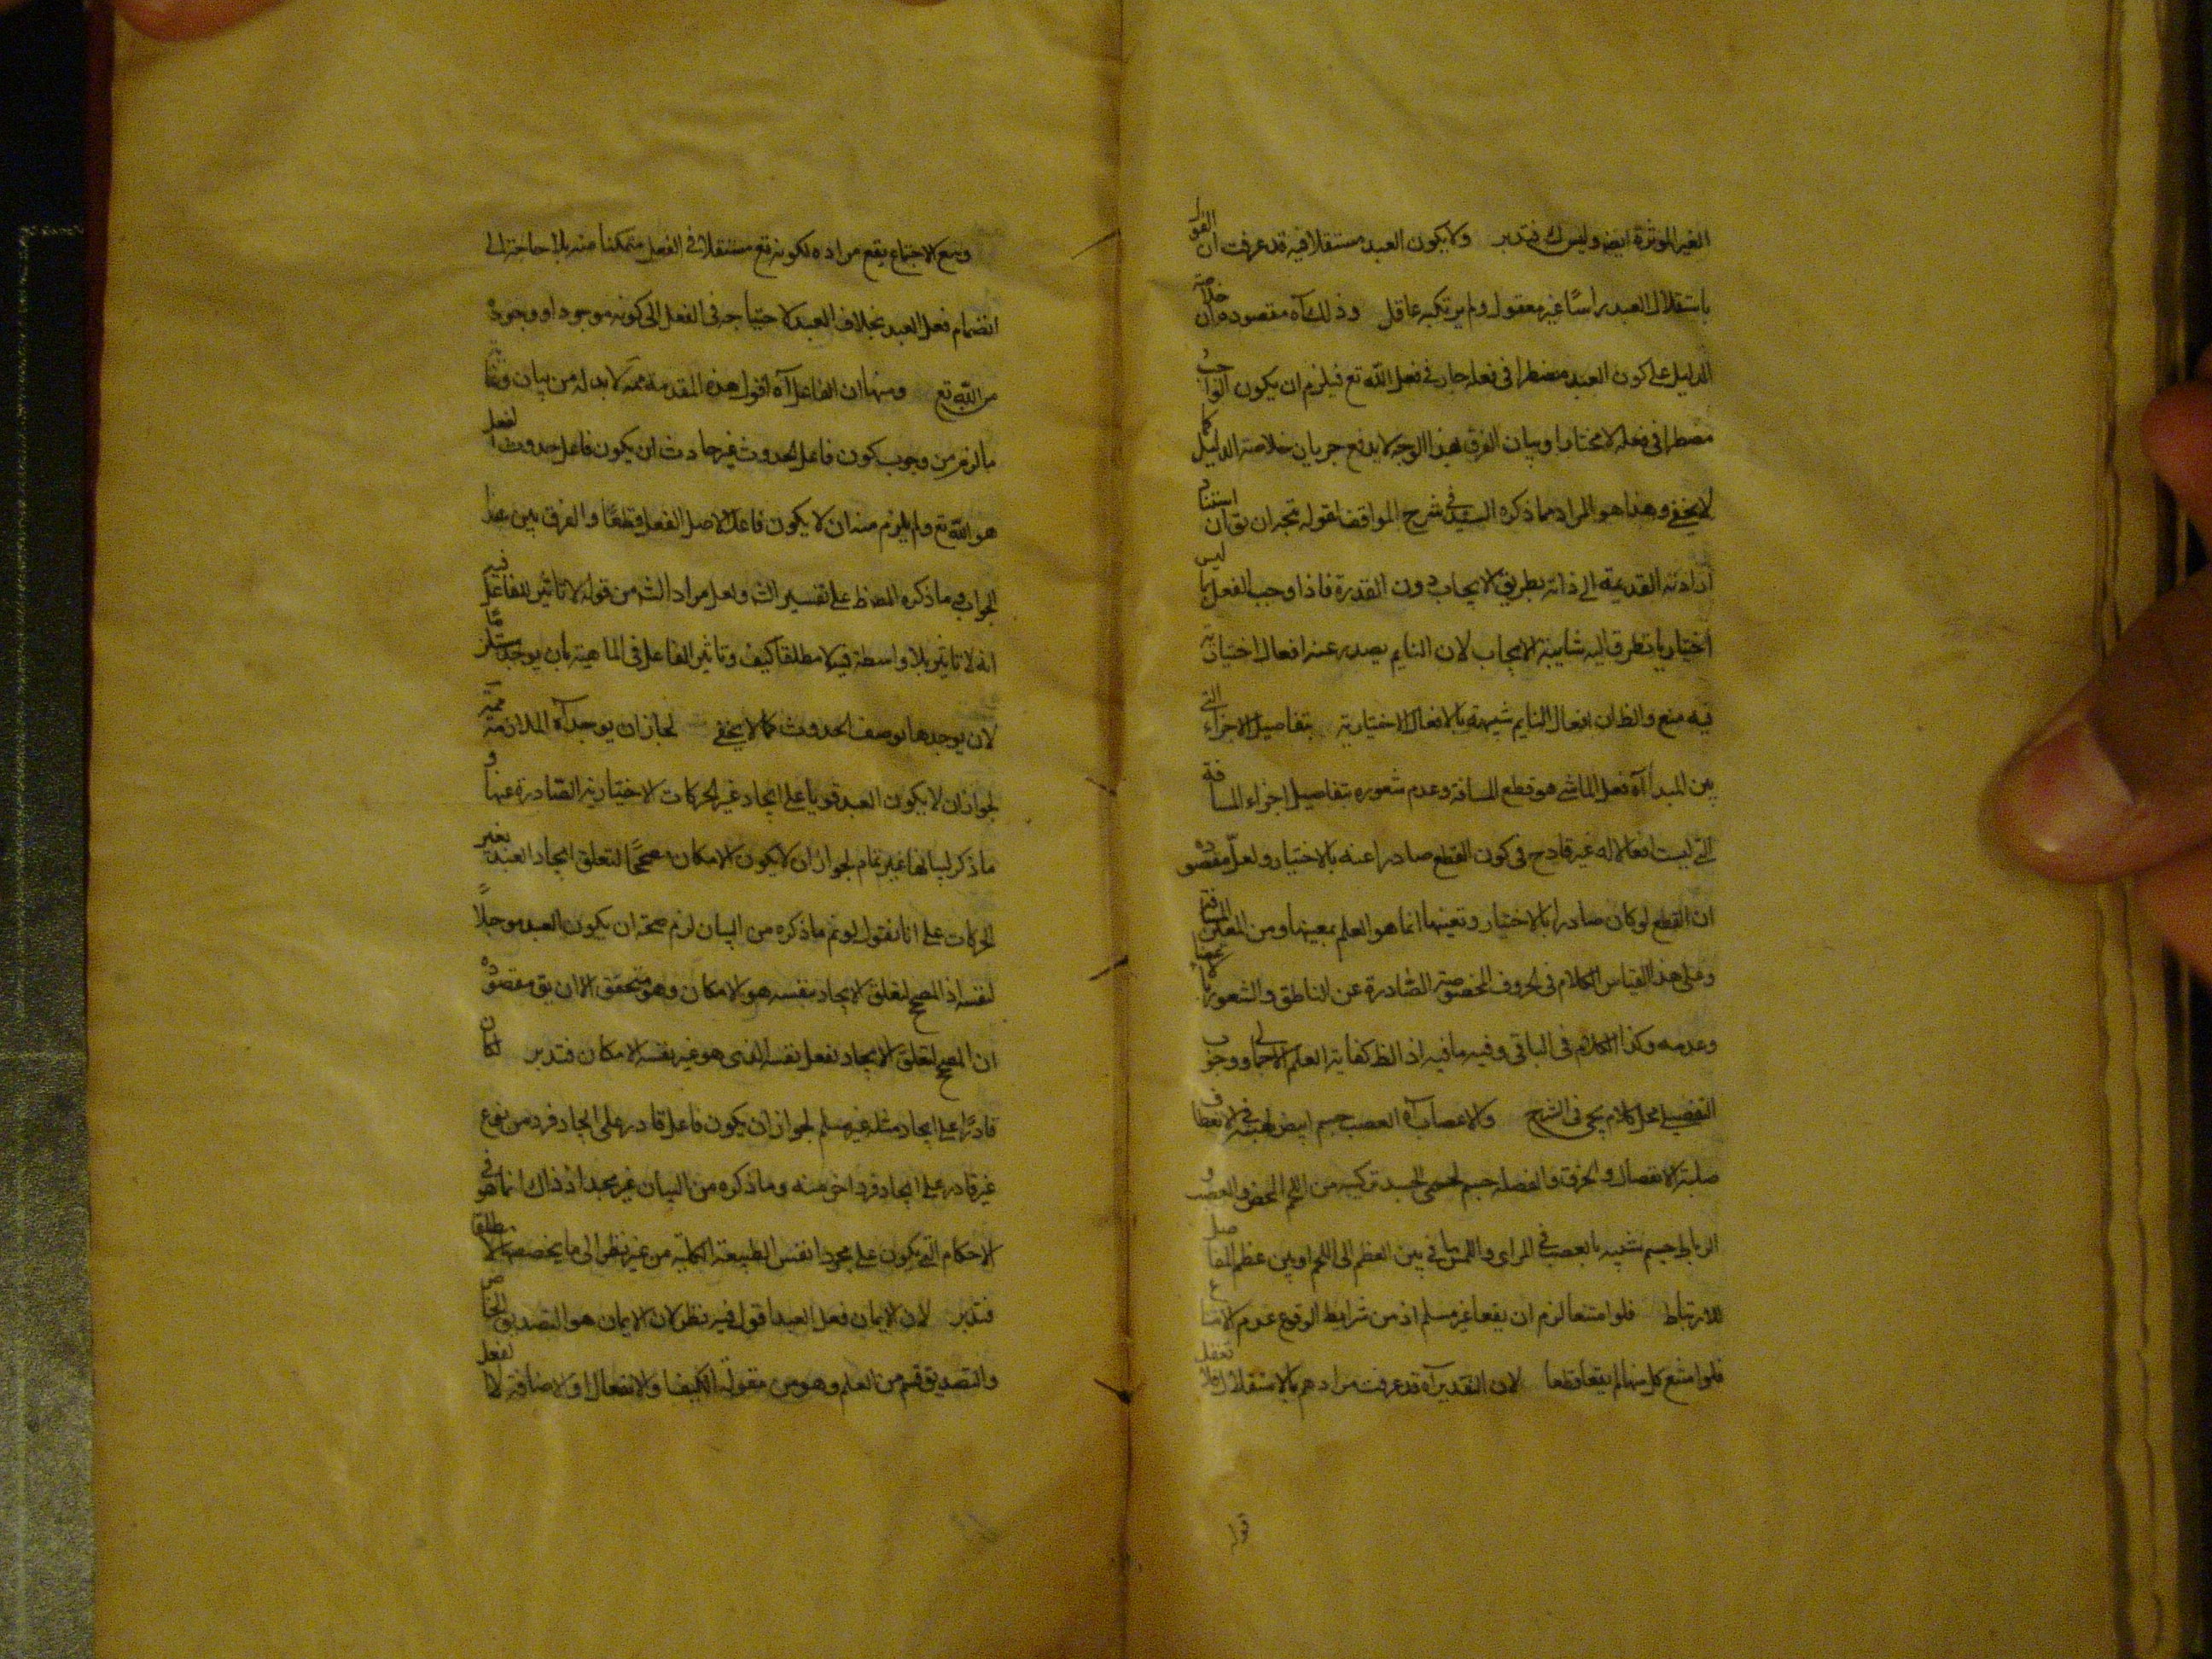 الغير الموثرة ايض وليس كك فتدبر ولا يكون العبد مستقلا فيه قد عرفت ان القول
باستقلال العبد راسًا غير معقول ولم يرتكبه عاقل وذلك آه مقصوده ان خلاصة
الدليل على كون العبد مضطرا في فعله جار في فعل الله تع فيلزم ان يكون الواجب
مضطرا في فعله لا مختارا وبيان الفرق بهذا الوجه لا يدفع جريان خلاصة الدليل كما
لا يخفى وهذا هو المراد مما ذكره السيد في شرح المواقف لقوله يتجه ان يق ان استناد
ارادته القديمة الى ذاته بطريق الايجاب دون القدرة فاذا وجب الفعل بما ليس
اختياريا تطرق اليه شايبة الايجاب لان النايم يصدر عنه افعال اختيارية
فيه منع والظ ان افعال النايم شبيهة بالافعال الاختيارية بتفاصيل الاجزاء التي
بين المبدأ آه فعل الماشي هو قطع المسافة وعدم شعوره بتفاصيل اجزاء المسافة
التي ليست افعالا له غير قادح في كون القطع صادرا عنه بالاختيار ولعل مقصوده
ان القطع لو كان صادرا بالاختيار وتعينها انما هو العلم بمعينها ومن المسافة
وعلى هذا القياس الكلام في الحروف المخصوصة الصادرة عن الناطق والشعور بالاعضاء
وعدمه وكذا الكلام في الباقي وفيه ما فيه اذ الظ كفاية العلم الاجمالي ووجوب
التفصيلي محل كلام يجئ في الشرح والاعصاب آه العصب جسم ابيض لين في الانعطاف
صلبة الانفصال والعضلة جسم لحمي تركيبه من اللحم المحض والعصب و
الرباط جسم شبيه بالعصب في المراى والملمس ياتي بين العظم الى اللحم او بين عظم المفاصل
للارتباط فلو امتنعا لزم ان يقعا غير مسلم اذ من شرايط الوقوع عدم الامتناع
فلو امتنع كل منهما لم يقعا قطعا لان التقدير آه قد عرفت مرادهم بالاستقلال فلا تغفل
قوله
ومع الاجتماع يقع مراده لكونه تع مستقلا في الفعل متمكنا منه بلا حاجة الى
انضمام فعل العبد بخلاف العبد لاحتياجه في الفعل الى كونه موجودا ووجوده
من الله تع ومنها ان الفاعل آه اقول هذه المقدمة مما لا بد له من بيان
ما لزم من وجوب كون فاعل الحدوث غير حادث ان يكون فاعل حدوث الفعل
هو الله تع ولم يلزم منه ان لا يكون فاعل لاصل الفعل قطعًا والفرق بين هذا
الجواب وما ذكره على تفسير الش ولعل مراد الش من قوله لا تاثير للفاعل فيه
انه لا تاثير بلا واسطة فيه لا مطلقا كيف وتاثير الفاعل في الماهية بان يوجدها مستلزما
لان يوجدها بوصف الحدوث كما لا يخفى لجاز ان يوجد آه الملازمة
لجواز ان لا يكون العبد قويا على ايجاد غير الحركات الاختيارية الصادرة عنها و
ما ذكر لبيانها غير تام لجواز ان لا يكون الامكان مصححًا لتعلق ايجاد العبد بغير
الحركات على انا نقول لو تم ما ذكره من البيان لزم صحة ان يكون العبد موجدًا
لنفسه اذ المصحح لتعلق الايجاد بنفسه هو الامكان وهو متحقق الا ان يق مقصوده
ان المصحح لتعلق الايجاد بفعل نفسه الذى هو غير نفسه الامكان فتدبر لكان
قادرًا على ايجاد مثله غير مسلم لجواز ان يكون فاعل قادر على ايجاد فرد من نوع
غير قادر على ايجاد فرد اخر منه وما ذكره من البيان غير مجد اذ ذاك انما هو في
الاحكام التي يكون على مجرد نفس الطبيعة الكلية من غير نظر الى ما يخصصها لا مطلقا
فتدبر لان الايمان فعل العبد اقول فيه نظر لان الايمان هو التصديق الخاص
والتصديق قسم من العلم وهو من مقولة الكيف او الانفعال او الاضافة لا الفعل